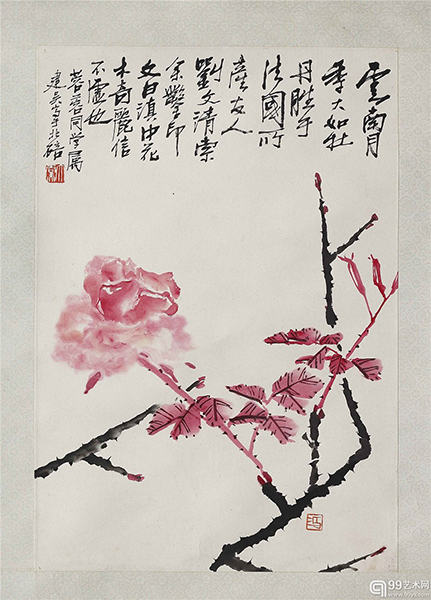 雲南月
季大如牡
丹勝于
法國所
產友人
劉文清索
余鑿印
文曰滇中花
木奇麗信
不虛也
蓉 同學屬
建吳 北碚
99艺术网
www.99ys.com